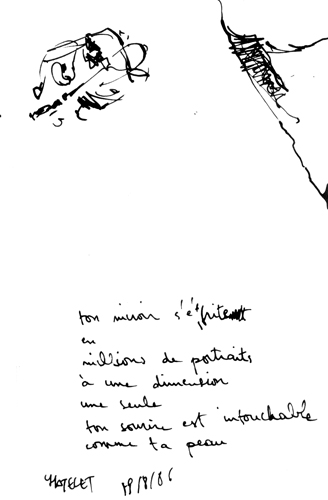 ton miroir s'effrite
en
millions de portraits
à une dimension
une seule
ton sourire est intouchable
comme ta peau
CHATELET 19/8/86